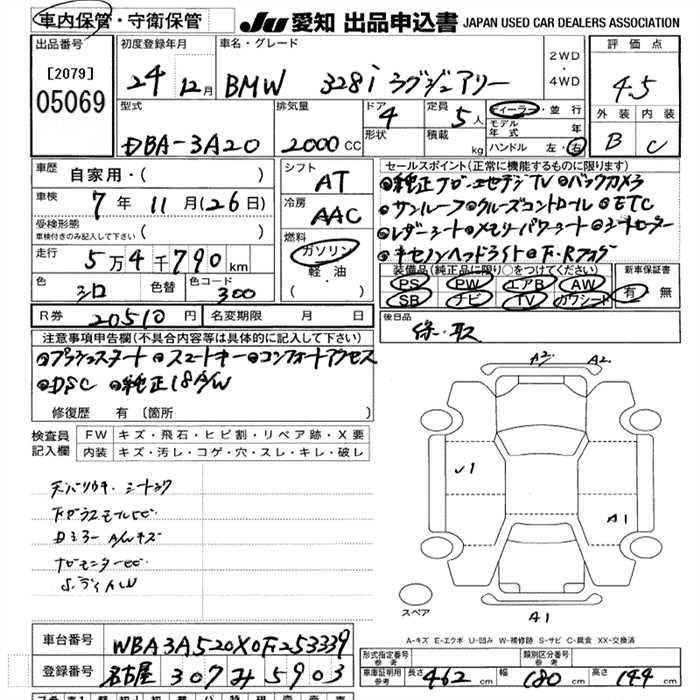 車内保管・守衛保管
JU 愛知 出品申込書 JAPAN USED CAR DEALERS ASSOCIATION
出品番号 初度登録年月 車名・グレード 2WD・4WD 評価点
[2079] 05069 24 12月 BMW 328i ラグジュアリー 4.5
型式 排気量 ドア 4 定員 5人 ディーラー・並行 外装 内装
DBA-3A20 2000 CC 形状 積載 kg モデル年式 年 B C
ハンドル 左・右
車歴 自家用・( ) シフト AT セールスポイント(正常に機能するものに限ります)
車検 7年 11月(26日) 冷房 AAC ●純正ナビ・地デジTV ●バックカメラ
受検形態 車検付きのみ記入して下さい ( ) ●サンルーフ ●クルーズコントロール ●ETC
走行 5万4千790km 燃料 ガソリン ●レザーシート ●メモリーパワーシート ●シートヒーター
軽・油 ( ) ●キセノンヘッドライト ●F・Rフォグ
色 シロ 色替 色コード 300 装備品(純正品に限り○をつけてください) 新車保証書
PS PW エアB AW 有・無
SB ナビ TV カワシート
R券 20510円 名変期限 月 日 後日品 保・取
注意事項申告欄(不具合内容等は具体的に記入して下さい)
●プッシュスタート ●スマートキー ●コンフォートアクセス
●DSC ●純正18A/W
修復歴 有 (箇所 )
検査員記入欄 FW キズ・飛石・ヒビ割・リペア跡・X要
内装 キズ・汚レ・コゲ・穴・スレ・キレ・破レ
A2 A2
U1
A1
Dミラー A/Wキズ
スペア
A1
A-キズ E-エクボ U-凹み W-補修跡 S-サビ C-腐食 XX-交換済
車台番号 WBA3A520X0F253339 形式指定番号 参考 類別区分番号 参考
登録番号 名古屋 307 み 5903 車庫証明用 参考 長さ 462 cm 幅 180 cm 高さ 144 cm